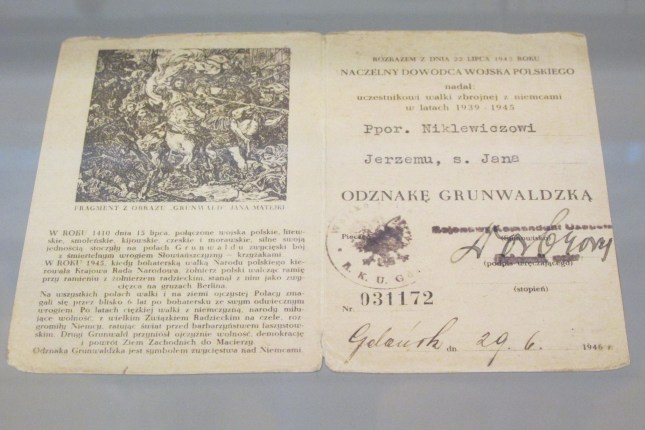 FRAGMENT Z OBRAZU „GRUNWALD" JANA MATEJKI
W ROKU 1410 dnia 15 lipca, połączone wojska polskie, litew-
skie, smoleńskie, kijowskie czeskie i morawskie, silne swoją
jednością stoczyły na polach Grunwaldu zwycięski bój
z śmiertelnym wrogiem Słowiańszczyzny — krzyżakami.
W ROKU 1945, kiedy bohaterską walką Narodu polskiego kie-
rowała Krajowa Rada Narodowa, żołnierz polski walcząc ramię
przy ramieniu z żołnierzem radzieckim, stanął z nim jako zwy-
cięzca na gruzach Berlina.
Na wszystkich polach walki i na ziemi ojczystej Polacy zma-
gali się przez blisko 6 lat po bohatersku ze swym odwiecznym
wrogiem. Po latach ciężkiej walki z niemczyzną, narody miłu-
jące wolność, z wielkim Związkiem Radzieckim na czele, roz-
gromiły Niemcy, ratując świat przed barbarzyństwem faszystow-
skim. Drogi Grunwald przyniósł ojczyźnie wolność, demokrację
i powrót Ziem Zachodnich do Macierzy
Odznaka Grunwaldzka jest symbolem zwycięstwa nad Niemcami.
ROZKAZEM Z DNIA 22 LIPCA 1945 ROKU
NACZELNY DOWÓDCA WOJSKA POLSKIEGO
nadał
uczestnikowi walki zbrojnej z niemcami
w latach 1939 - 1945
Ppor. Niklewiczowi
Jerzemu, s. Jana
ODZNAKĘ GRUNWALDZKĄ
Rejonowy Komendant Uzup.
R.K.U. G
(podpis wręczającego)
(stopień)
Nr. 031172
Gdańsk dn. 29. 6. 1946 r.